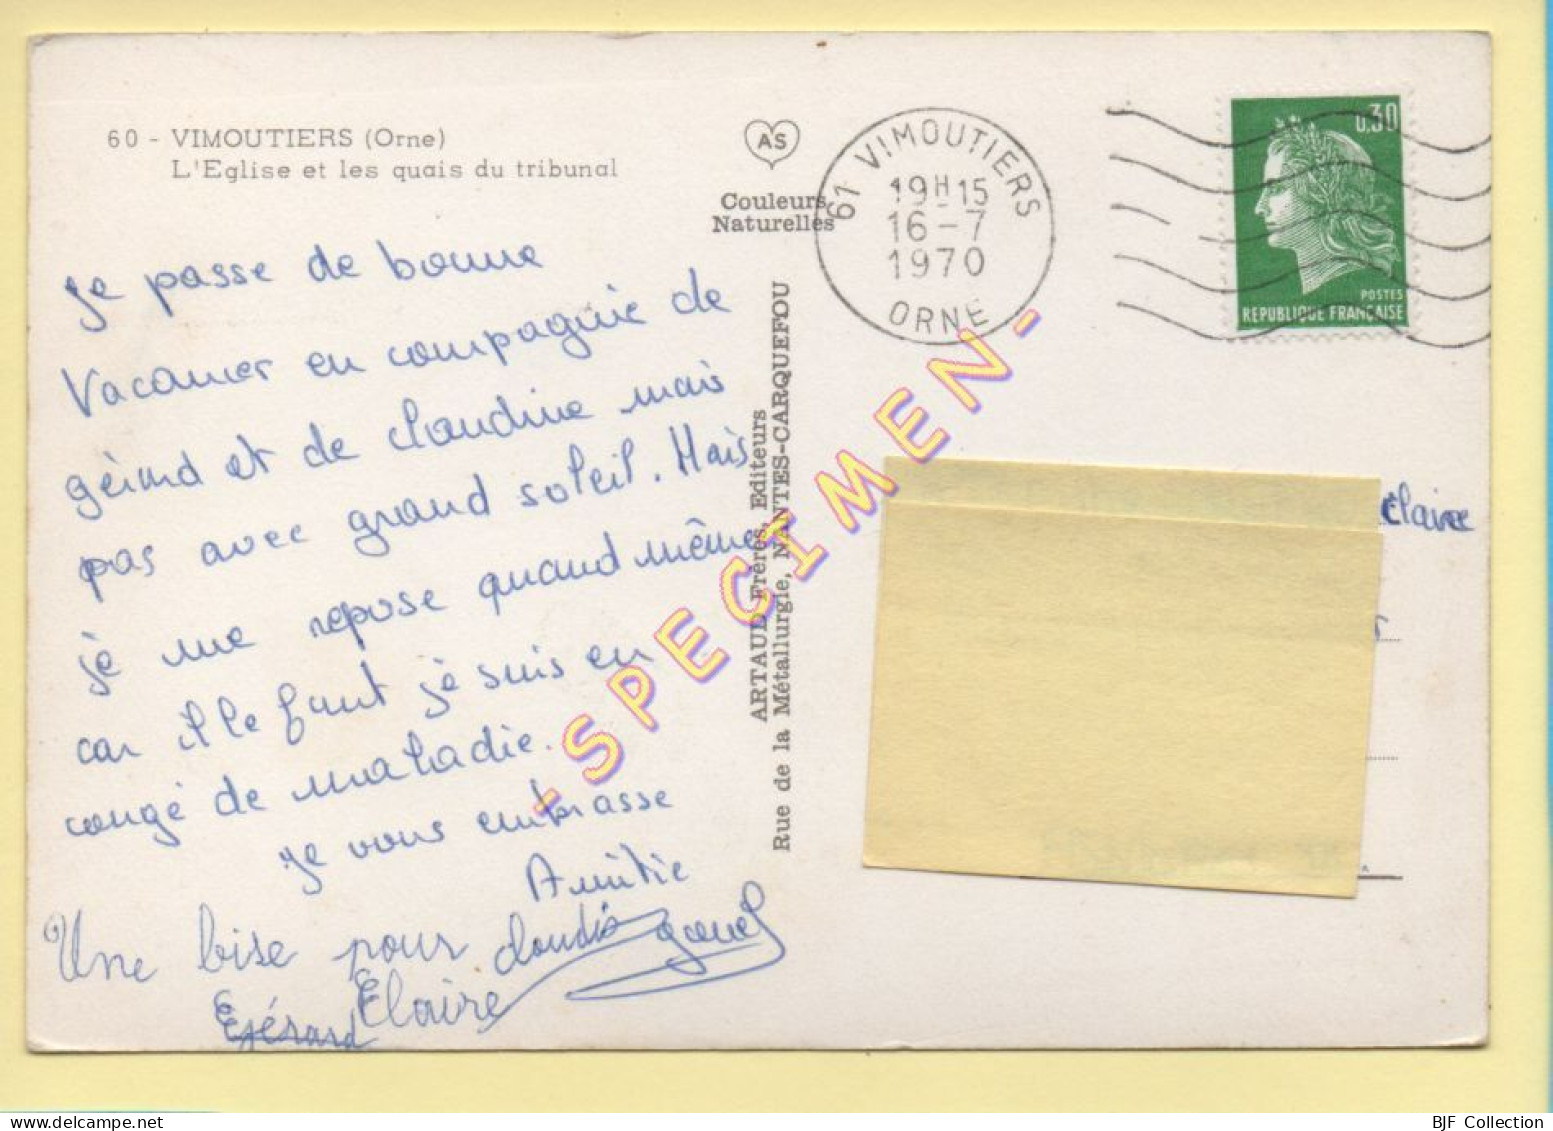 60 - VIMOUTIERS (Orne)
L'Eglise et les quais du tribunal
AS
Couleurs
Naturelles
61 VIMOUTIERS
19H15
16-7
1970
ORNE
0,30
POSTES
REPUBLIQUE FRANÇAISE
je passe de bonne
Vacances en compagnie de
gérard et de claudine mais
pas avec grand soleil. Mais
je me repose quand même
car il le faut je suis en
congé de maladie.
je vous embrasse
Amitié
Une bise pour claudie
Gérard Claire
ARTAUD Frères, Editeurs
Rue de la Métallurgie, NANTES-CARQUEFOU
-SPECIMEN-
Claire
BJF Collection